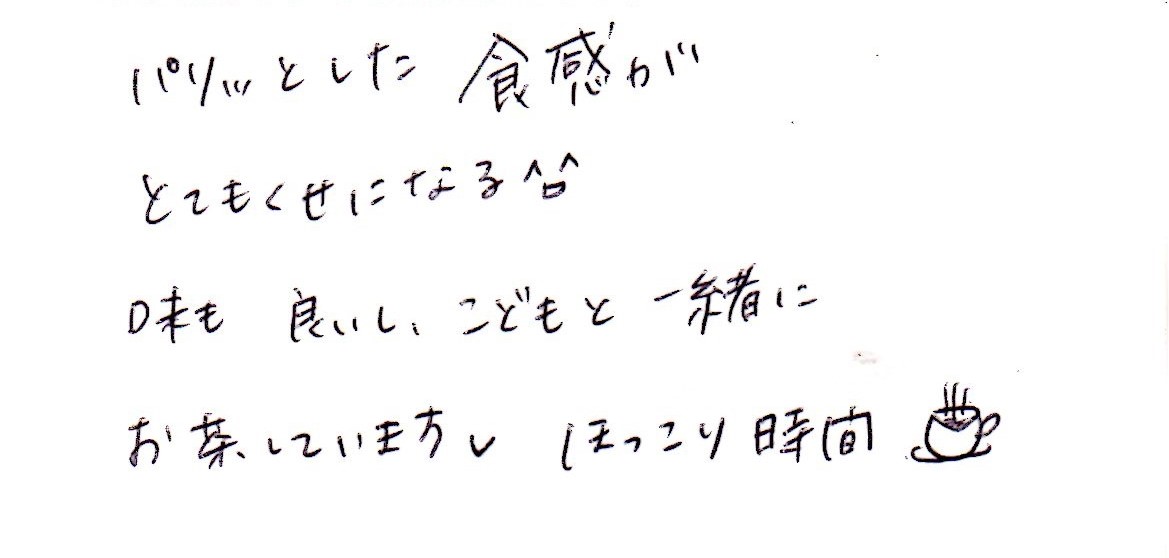 パリッとした 食感が
とてもくせになる^^
味も 良いし、こどもと 一緒に
お茶しています ほっこり 時間